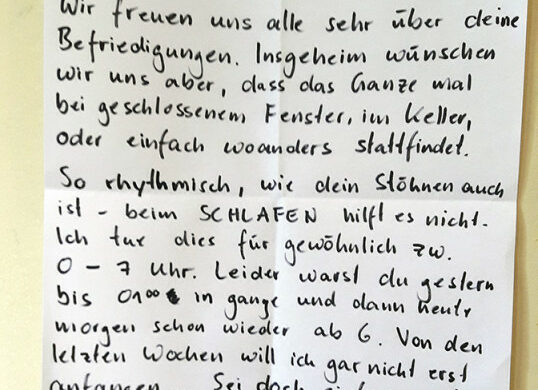 Wir freuen uns alle sehr über deine
Befriedigungen. Insgeheim wünschen
wir uns aber, dass das Ganze mal
bei geschlossenem Fenster, im Keller,
oder einfach woanders stattfindet.
So rhythmisch, wie dein Stöhnen auch
ist - beim SCHLAFEN hilft es nicht.
Ich tue dies für gewöhnlich zw.
0 - 7 Uhr. Leider warst du gestern
bis 01⁰⁰ in gange und dann heute
morgen schon wieder ab 6. Von den
letzten Wochen will ich gar nicht erst
anfangen. Sei doch